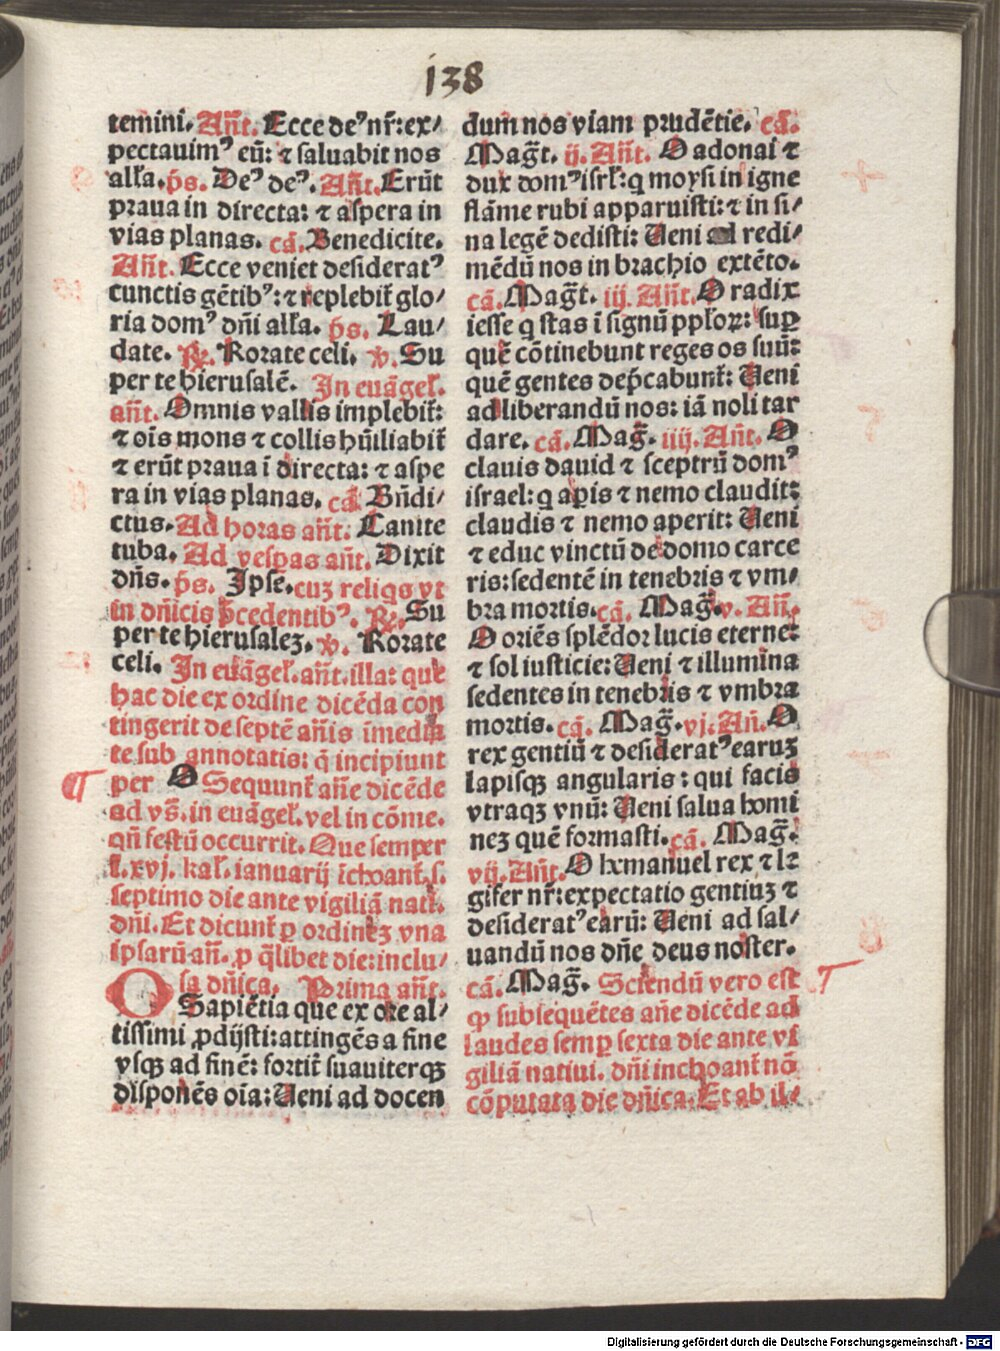 138
temini. Añt. Ecce deꝰ nr̄: ex/
pectauimꝰ eū: ⁊ saluabit nos
alła. p̄s. Deꝰ deꝰ. Añt. Erūt
praua in directa: ⁊ aspera in
vias planas. cā. Benedicite.
Añt. Ecce veniet desideratꝰ
cunctis gētibꝰ: ⁊ replebit̄ glo/
ria domꝰ dn̄i alła. p̄s. Lau/
date. ℟. Rorate celi. ℣. Su
per te hierusalē. In euāgeł.
añt. Omnis vallis implebit̄:
⁊ oīs mons ⁊ collis hūiliabit̄
⁊ erūt praua ī directa: ⁊ aspe
ra in vias planas. cā. Bn̄di/
ctus. Ad horas añt. Canite
tuba. Ad vesp̱as añt. Dixit
dn̄s. p̄s. Ipse. cuꝫ reliqs vt
in dn̄icis p̄cedentibꝰ. ℟. Su
per te hierusaleꝫ. ℣. Rorate
celi. In euāgeł. añt. illa: que
hac die ex ordine dicēda con
tingerit de septē añis īmedia
te sub annotatis: q̄ incipiunt
per O Sequunt̄ añe dicēde
ad vs̄. in euāgeł. vel in cōme.
qn̄ festū occurrit. Que semper
ł. xvj. kał. ianuarij īchoant̄. s.
septimo die ante vigiliā nati.
dn̄i. Et dicunt̄ ꝑ ordineꝫ vna
ipsarū añ. ꝓ q̄libet die: inclu/
sa dn̄ica. Prima añt.
O Sapiētia que ex ore al/
tissimi ꝓdijsti: attingēs a fine
vsqꝫ ad finē: fortit̄ suauiterqꝫ
disponēs oīa: Ueni ad docen
dum nos viam prudētie. cā.
Mag̃t. ij. Añt. O adonai ⁊
dux domꝰ isrł: q moysi in igne
flāme rubi apparuisti: ⁊ in si/
na legē dedisti: Ueni ad redi/
mēdū nos in brachio extēto.
cā. Mag̃t. iij. Añt. O radix
iesse q stas ī signū ppłoꝝ: suꝑ
quē cōtinebunt reges os suū:
quē gentes dep̄cabunt̄: Ueni
ad liberandū nos: iā noli tar
dare. cā. Mag̃. iiij. Añt. O
clauis dauid ⁊ sceptrū domꝰ
israel: q aꝑis ⁊ nemo claudit:
claudis ⁊ nemo aperit: Ueni
⁊ educ vinctū de domo carce
ris: sedentē in tenebris ⁊ vm/
bra mortis. cā. Mag̃. v. Añ.
O oriēs splēdor lucis eterne:
⁊ sol iusticie: Ueni ⁊ illumina
sedentes in tenebris ⁊ vmbra
mortis. cā. Mag̃. vj. Añ. O
rex gentiū ⁊ desideratꝰ earuꝫ
lapisqꝫ angularis: qui facis
vtraqꝫ vnū: Ueni salua homi
neꝫ quē formasti. cā. Mag̃.
vij. Añt. O hxmanuel rex ⁊ le
gifer nr̄: expectatio gentiuꝫ ⁊
desideratꝰ earū: Ueni ad sal/
uandū nos dn̄e deus noster.
cā. Mag̃. Sciendū vero est
ꝙ subsequētes añe dicēde ad
laudes semꝑ sexta die ante vi
giliā natiui. dn̄i inchoant̄ nō
cōputata die dn̄ica. Et ab il/
Digitalisierung gefördert durch die Deutsche Forschungsgemeinschaft - DFG